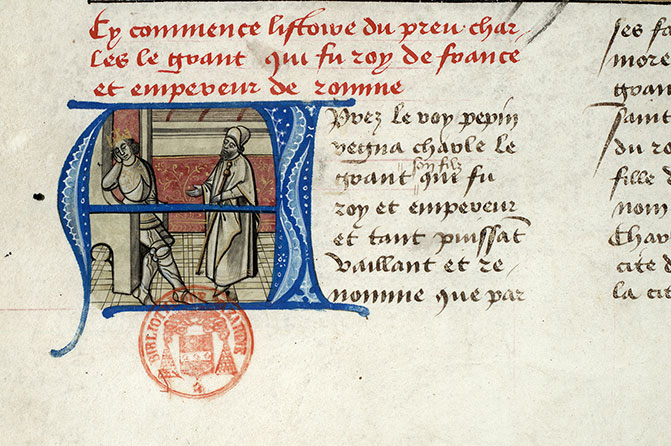 Cy commence listoire du preu char-
les le grant qui fu roy de france
et empereur de romme
Aprez le roy pepin
regna charle le
son filz
grant qui fu
roy et empereur
et tant puissāt
vaillant et re-
nomme que par
ses fa
more
gran
saint
du ro
fille d
nom
Char
cite d
la cit
BIBLIOT